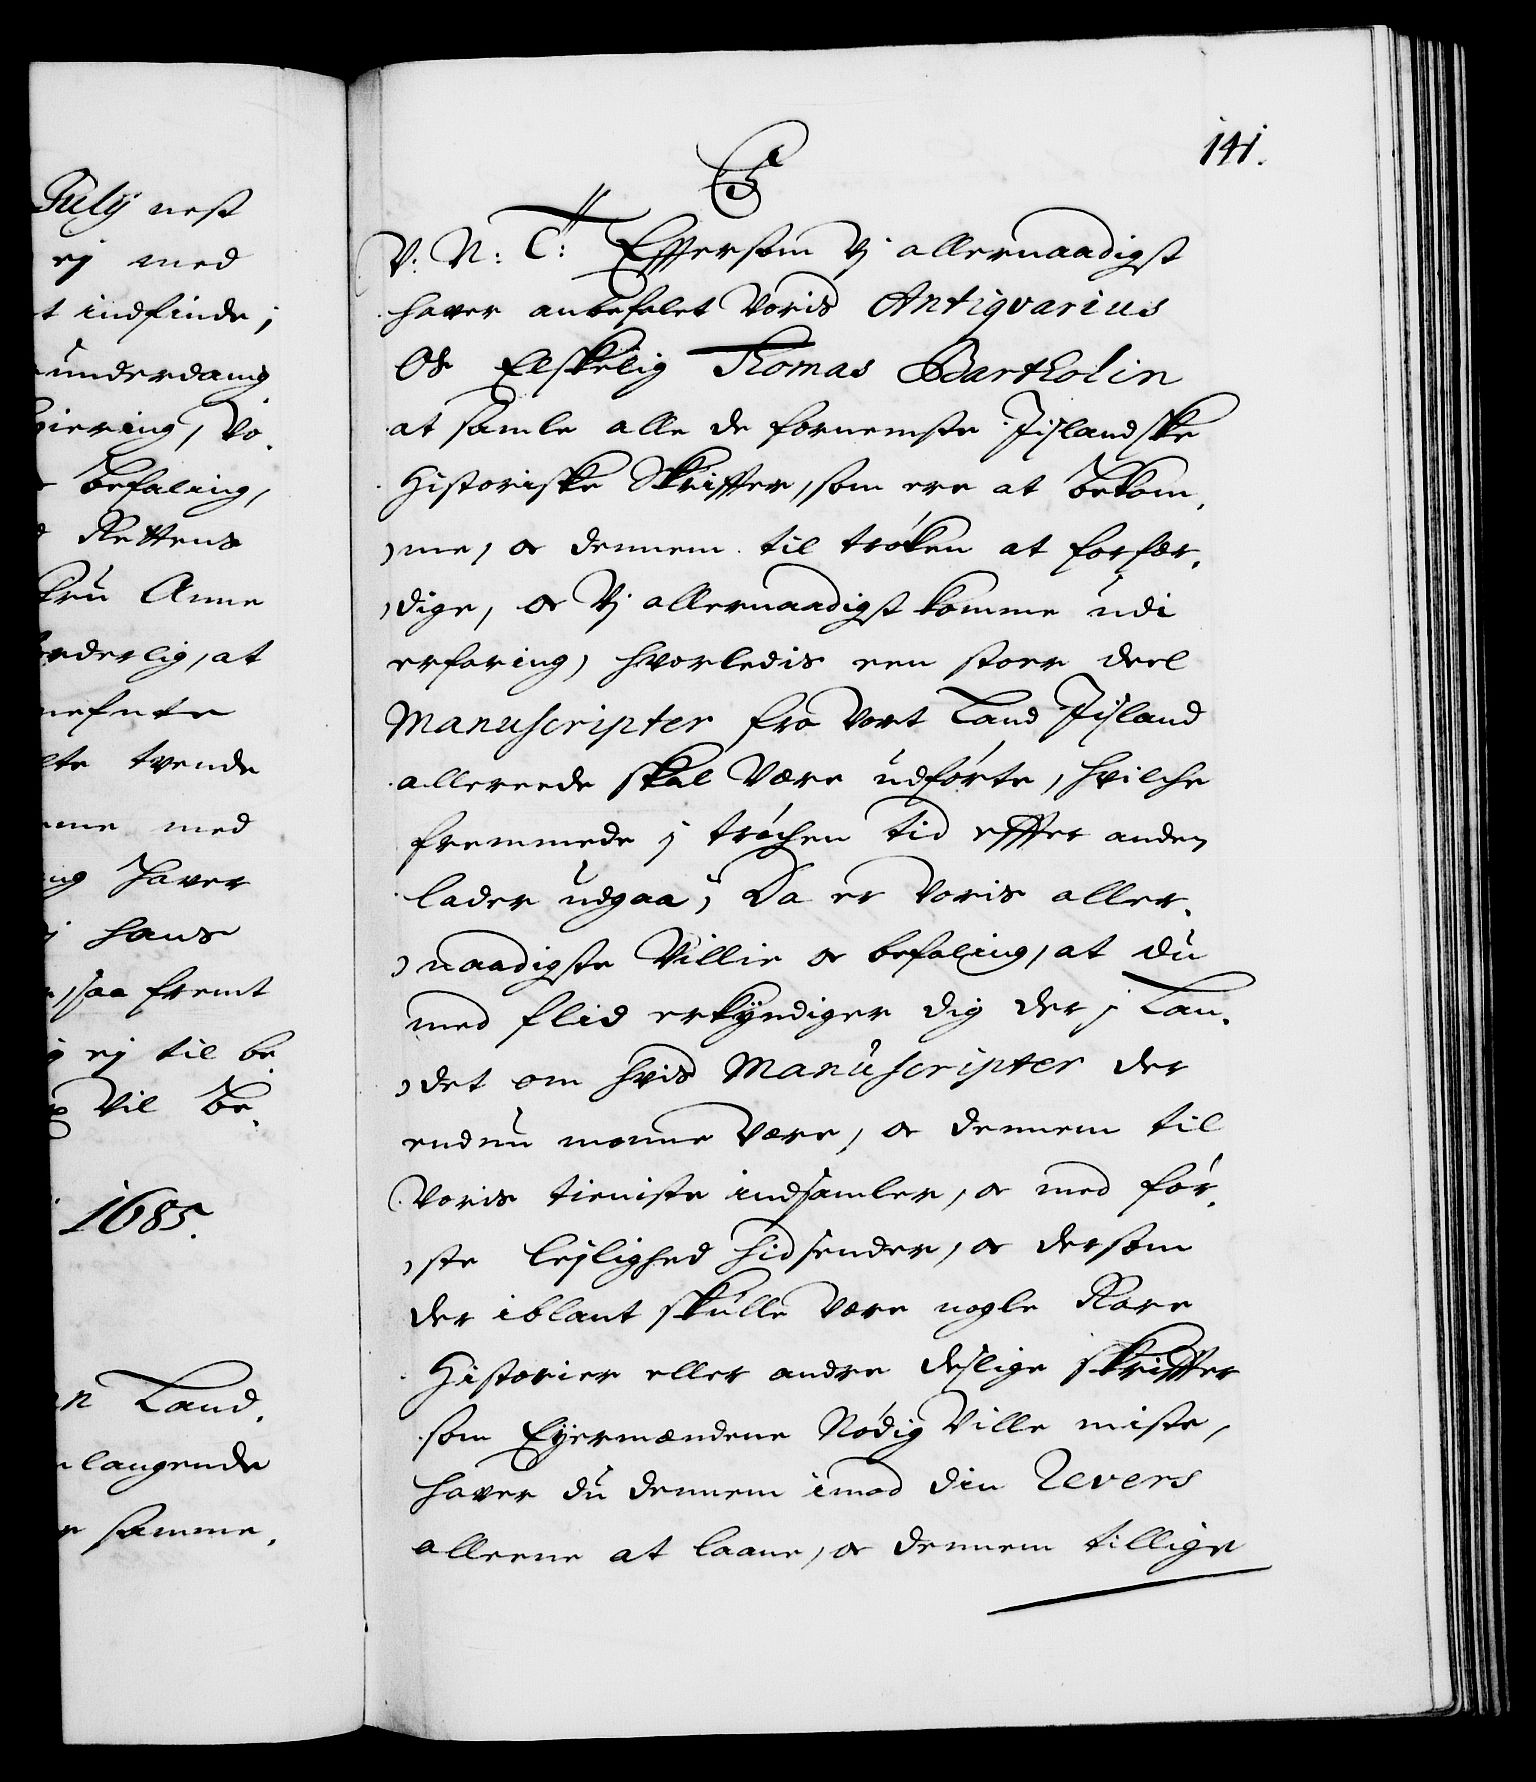 July nest
ej med
t indfinde;
underdanig
giering, Vo-
befaling,
Rettens
Fru Anne
rderlig, at
nefnte
lte tvende
med
ng hafver
j hans
saa fremt
ej til be-
Vil be-
1685.
Land,
langende
samme,
141.
C5
V: N: T: Effersom Vj allernaadigst
hafver anbefalet Voris Antiqvarius
Os Elskelig Thomas Bartholin
at samle alle de fornemste Jislandske
Historiske Skriffter, som ere at bekom-
me, oc dennem til trøken at forfær-
dige, oc Vj allernaadigst komme udi
erfaring, hvorledis een stoer deel
Manuscripter fra Vort Land Jisland
allereede skal Være udførte, hvilche
fremmede j trøchen tid effter anden
lader udgaa; Da er Voris aller-
naadigste Villie oc befaling, at du
med flid erkyndiger dig der j Lan-
det om hvis Manuscripter der
endnu monne Være, oc dennem til
Voris tieniste indsamler, oc med før-
ste lejlighed hidsender, oc dersom
der iblant skulle Være nogle Rare
Historier eller andre deslige skriffter
som Eyermændene Nødig Ville miste,
hafver du dennem imod din Revers
alleene at laane, oc dennem tillige